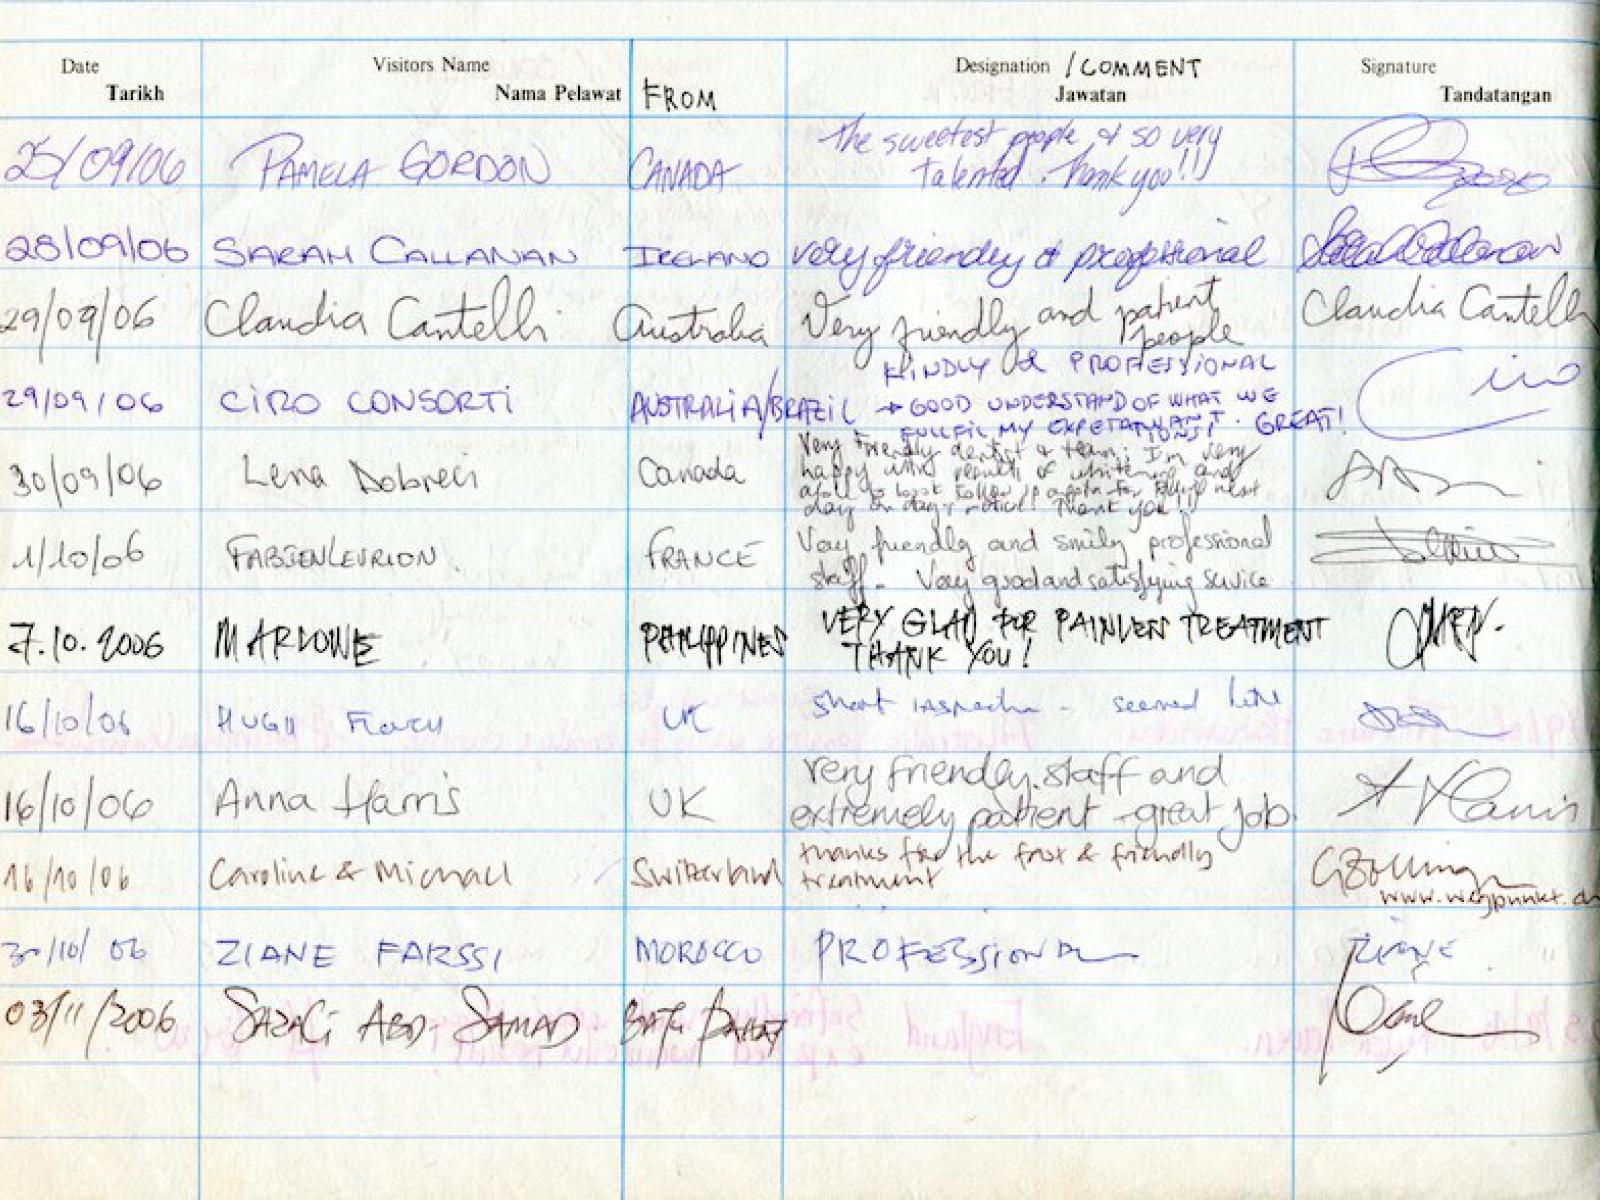 Date Visitors Name Designation / COMMENT Signature
Tarikh Nama Pelawat FROM Jawatan Tandatangan
25/09/06 PAMELA GORDON CANADA The sweetest people & so very
talented. Thank you!!
28/09/06 SARAH CALLANAN IRELAND very friendly & professional
29/09/06 Claudia Cantelli Australia Very friendly and patient Claudia Cantelli
people
KINDLY & PROFESSIONAL
29/09/06 CIRO CONSORTI AUSTRALIA/BRAZIL → GOOD UNDERSTAND OF WHAT WE Ciro
FULLFIL MY GREAT!
Very friendly dentist & team; I'm very
30/09/06 Lena Canada happy with results of whitening and
day on day's notice! Thank you!!
1/10/06 FRANCE Very friendly and smily professional
staff - Very good and satisfying service
7.10.2006 MARLOWE PHILIPPINES VERY GLAD FOR PAINLESS TREATMENT
THANK YOU!
16/10/06 HUGH UK short inspection - seemed
16/10/06 Anna Harris UK very friendly staff and A Harris
extremely patient - great job
16/10/06 Caroline & Michael Switzerland thanks for the fast & friendly
treatment
30/10/06 ZIANE FARSSI MOROCCO PROFESSIONAL ZIANE
03/11/2006 SAZALI ABD. SAMAD BATU PAHAT